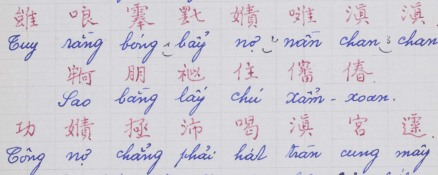 雖 哴 嫧 滇 滇
Tuy rằng bóng - bẩy nợ - nần chan - chan
朋 祂 住
Sao bằng lấy chú xẩm - xoan.
功 嫧 極 沛 喝 滇 宮
Công nợ chẳng phải hát tràn cung mây